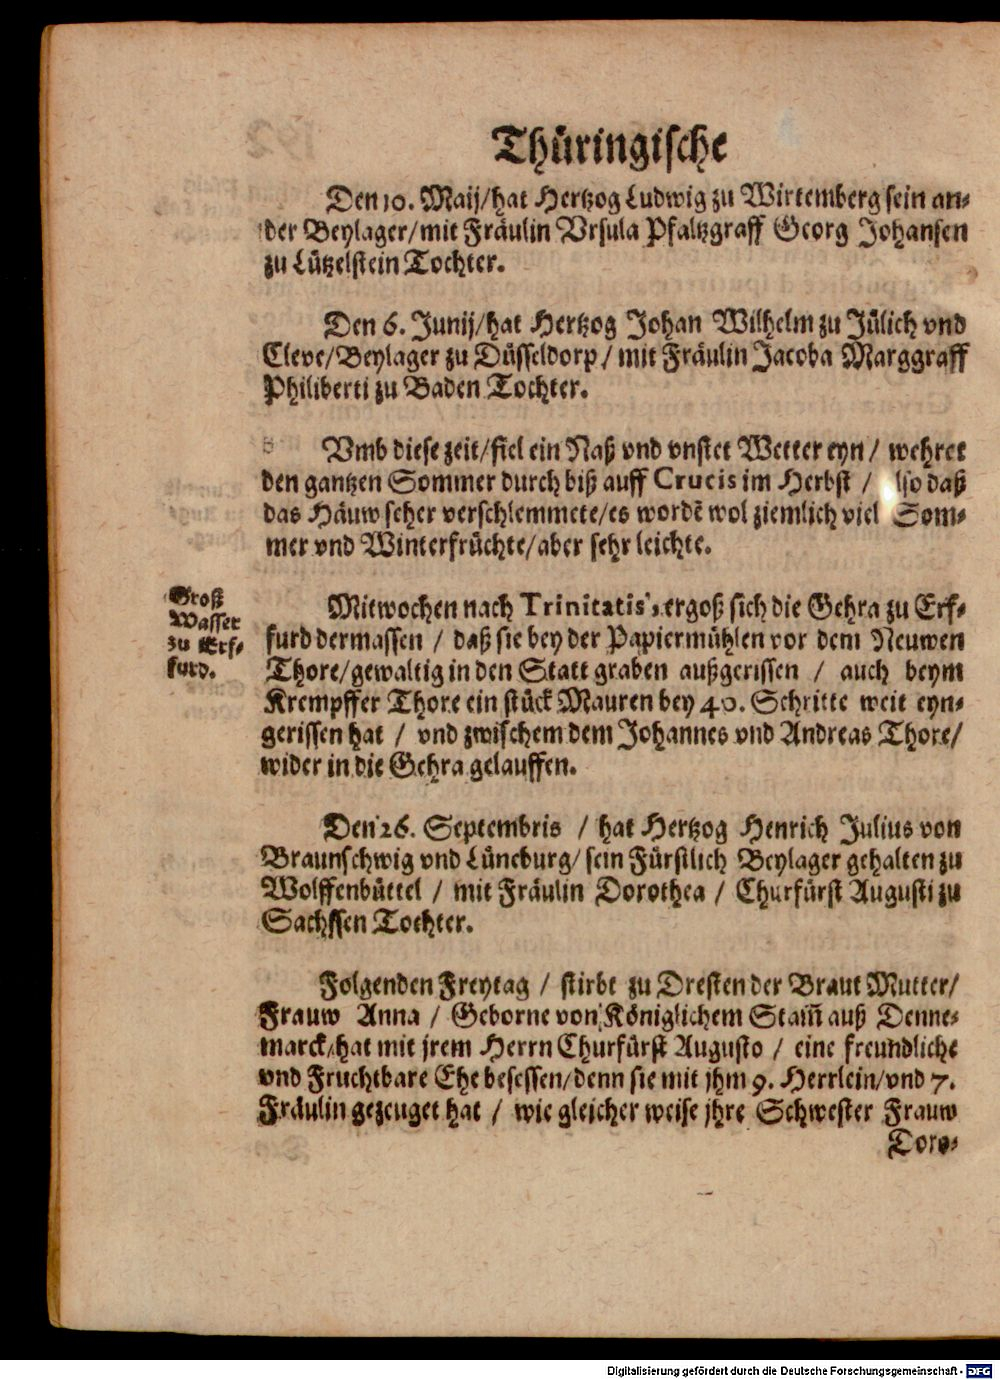 Thüringische
Den 10. Maij/hat Hertzog Ludwig zu Wirtemberg sein an-
der Beylager/mit Fräulin Vrsula Pfaltzgraff Georg Johansen
zu Lützelstein Tochter.
Den 6. Junij/hat Hertzog Johan Wilhelm zu Jülich vnd
Cleve/Beylager zu Düsseldorp/mit Fräulin Jacoba Marggraff
Philiberti zu Baden Tochter.
Vmb diese zeit/fiel ein Naß vnd vnstet Wetter eyn/ wehret
den gantzen Sommer durch biß auff Crucis im Herbst / also daß
das Häuw seher verschlemmete/es wordē wol ziemlich viel Som-
mer vnd Winterfrüchte/aber sehr leichte.
Groß
Wasser
zu Erf-
furd.
Mitwochen nach Trinitatis, ergoß sich die Gehra zu Erf-
furd dermassen / daß sie bey der Papiermühlen vor dem Neuwen
Thore/gewaltig in den Statt graben außgerissen / auch beym
Krempffer Thore ein stück Mauren bey 40. Schritte weit eyn-
gerissen hat / vnd zwischem dem Johannes vnd Andreas Thore/
wider in die Gehra gelauffen.
Den 26. Septembris / hat Hertzog Henrich Julius von
Braunschwig vnd Lüneburg/ sein Fürstlich Beylager gehalten zu
Wolffenbüttel / mit Fräulin Dorothea / Churfürst Augusti zu
Sachssen Tochter.
Folgenden Freytag / stirbt zu Dresten der Braut Mutter/
Frauw Anna / Geborne von Königlichem Stam̄ auß Denne-
marck/hat mit jrem Herrn Churfürst Augusto / eine freundliche
vnd Fruchtbare Ehe besessen/denn sie mit jhm 9. Herrlein/vnd 7.
Fräulin gezeuget hat / wie gleicher weise jhre Schwester Frauw
Doro-
Digitalisierung gefördert durch die Deutsche Forschungsgemeinschaft - DFG